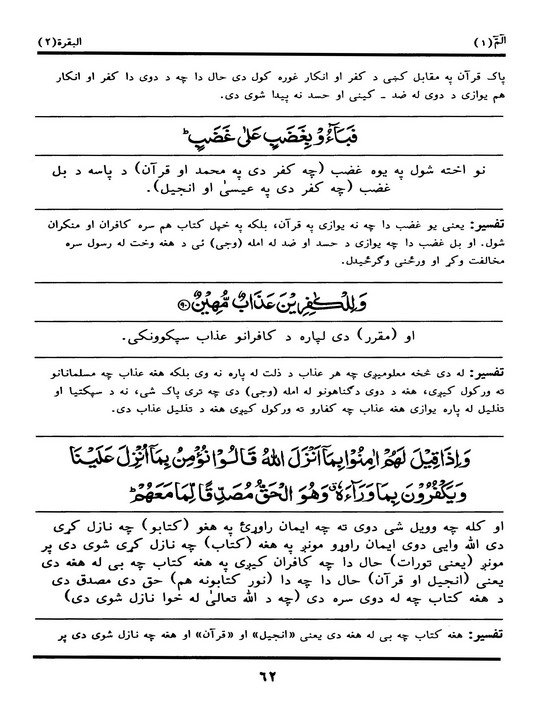 الٓمٓ (۱) البقرة (۲)
پاک قرآن په مقابل کښې د کفر او انکار غوره کول دی حال دا چه د دوی دا کفر او انکار
هم یوازی د دوی له ضد ـ کینی او حسد نه پیدا شوی دی.
فَبَآءُوْ بِغَضَبٍ عَلٰی غَضَبٍ ؕ
نو اخته شول په یوه غضب (چه کفر دی په محمد او قرآن) د پاسه د بل
غضب (چه کفر دی په عیسیٰ او انجیل).
تفسیر: یعنی یو غضب دا چه نه یوازی په قرآن، بلکه په خپل کتاب هم سره کافران او منکران
شول. او بل غضب دا چه یوازی د حسد او ضد له امله (وجی) ئی د هغه وخت له رسول سره
مخالفت وکړ او ورځنی وګرځیدل.
وَلِلْكٰفِرِيْنَ عَذَابٌ مُّهِيْنٌ ﴿۹۰﴾
او (مقرر) دی لپاره د کافرانو عذاب سپکوونکی.
تفسیر: له دی څخه معلومیږی چه هر عذاب د ذلت له پاره نه وی بلکه هغه عذاب چه مسلمانانو
ته ورکول کیږی، هغه د دوی دګناهونو له امله (وجی) دی چه تری پاک شی، نه د سپکتیا او
تذلیل له پاره یوازی هغه عذاب چه کفارو ته ورکول کیږی هغه د تذلیل عذاب دی.
وَاِذَا قِيْلَ لَهُمْ اٰمِنُوْا بِمَآ اَنْزَلَ اللّٰهُ قَالُوْا نُؤْمِنُ بِمَآ اُنْزِلَ عَلَيْنَا
وَيَكْفُرُوْنَ بِمَا وَرَآءَهٗ ۗ وَهُوَ الْحَقُّ مُصَدِّقًا لِّمَا مَعَهُمْ ؕ
او کله چه وویل شی دوی ته چه ایمان راوړئ په هغو (کتابو) چه نازل کړی
دی الله وایی دوی ایمان راوړو مونږ په هغه (کتاب) چه نازل کړی شوی دی پر
مونږ (یعنی تورات) حال دا چه کافران کیږی په هغه کتاب چه بی له هغه دی
یعنی (انجیل او قرآن) حال دا چه دا (نور کتابونه هم) حق دی مصدق دی
د هغه کتاب چه له دوی سره دی (چه د الله تعالیٰ له خوا نازل شوی دی)
تفسیر: هغه کتاب چه بی له هغه دی یعنی «انجیل» او «قرآن» او هغه چه نازل شوی دی پر
٦٢